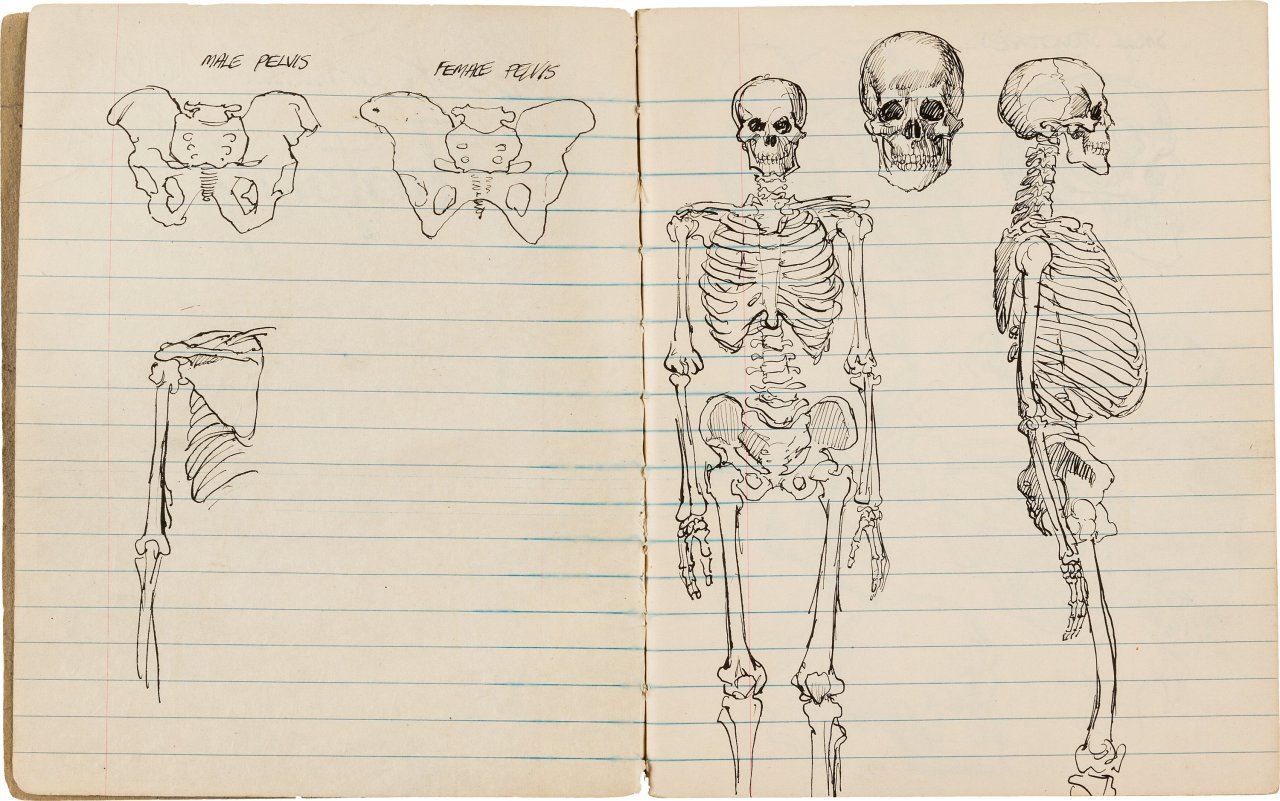 MALE PELVIS
FEMALE PELVIS